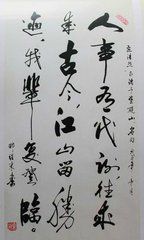 人事有代謝往來
成古今江山留勝
迹我輩复登臨